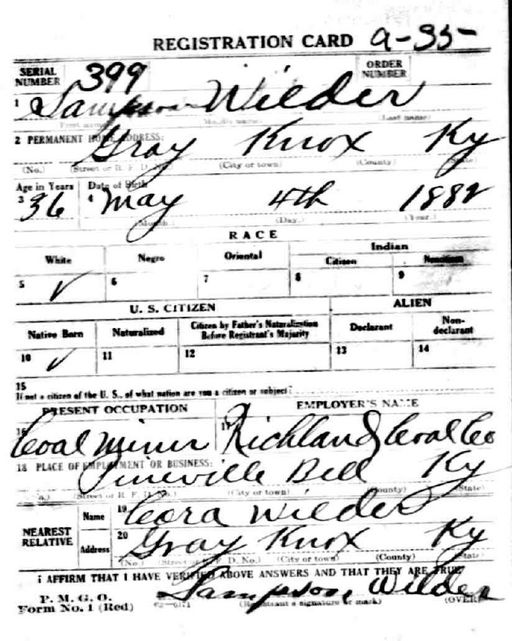 REGISTRATION CARD a-35-
SERIAL NUMBER 399 ORDER NUMBER
1 Sampson Wilder
(Middle name) (Last name)
2 PERMANENT HOME ADDRESS:
Gray Knox Ky
(No.) (Street or R. F. D. No.) (City or town) (County) (State)
Age in Years Date of Birth
3 36 4 May 4th 1882
(Month) (Day) (Year)
RACE
White Negro Oriental Indian
Citizen Noncitizen
5 ✓ 6 7 8 9
U. S. CITIZEN ALIEN
Native Born Naturalized Citizen by Father's Naturalization Before Registrant's Majority Declarant Non-declarant
10 ✓ 11 12 13 14
15
If not a citizen of the U. S., of what nation are you a citizen or subject?
PRESENT OCCUPATION EMPLOYER'S NAME
16 Coal Miner 17 Richland Coal Co
18 PLACE OF EMPLOYMENT OR BUSINESS:
Pineville Bell Ky
(Street or R. F. D. No.) (City or town) (County) (State)
NEAREST RELATIVE
Name 19 Cora Wilder
Address 20 Gray Knox Ky
(No.) (Street or R. F. D. No.) (City or town) (County) (State)
I AFFIRM THAT I HAVE VERIFIED ABOVE ANSWERS AND THAT THEY ARE TRUE
P. M. G. O.
Form No. 1 (Red) Sampson Wilder
(Registrant's signature or mark) (OVER)